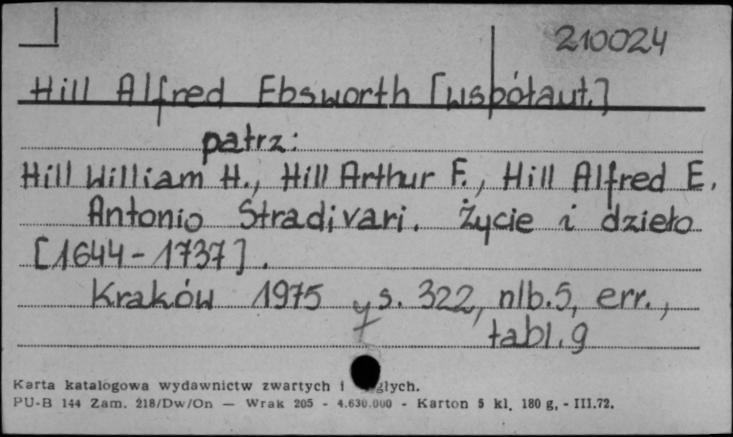 210024
Hill Alfred Ebsworth [współaut.]
patrz:
Hill William H., Hill Arthur F., Hill Alfred E.
Antonio Stradivari. Życie i dzieło
[1644-1737].
Kraków 1975 s. 322, nlb.5, err.,
tabl.9
Karta katalogowa wydawnictw zwartych i
PU-B 144 Zam. 218/Dw/On — Wrak 205 - 4.630.000 - Karton 5 kl. 180 g. - III.72.